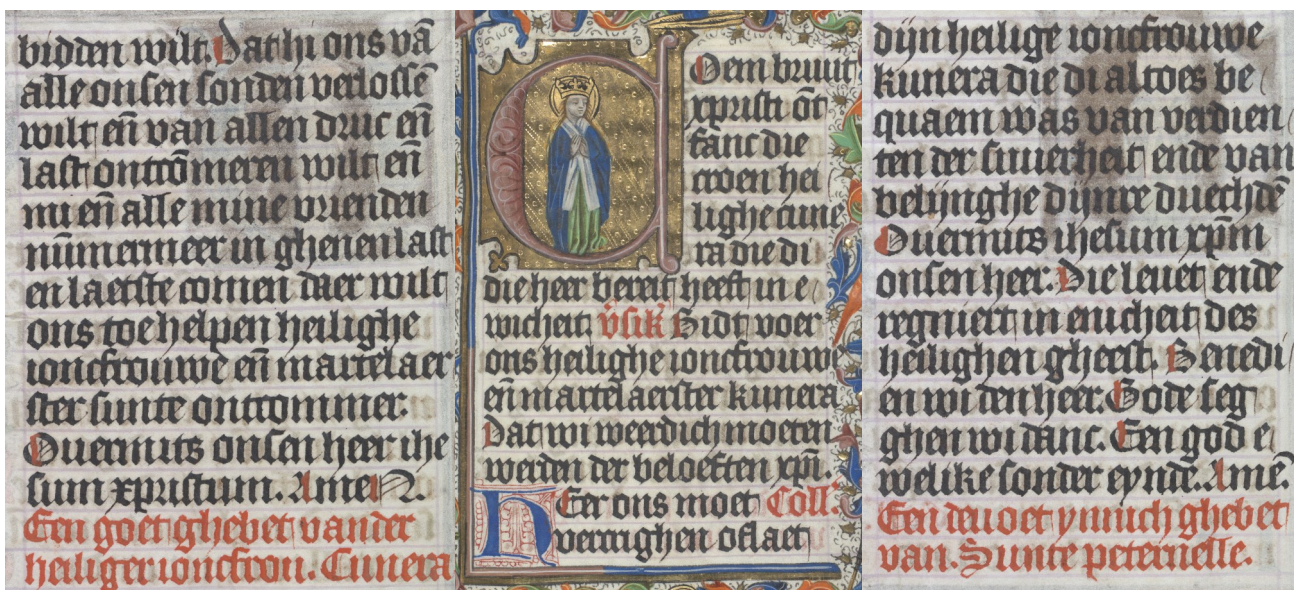 bidden wilt. Dat hi ons vā
alle onsen sonden verlossē
wilt eñ van allen druc eñ
last ontcōmeren wilt eñ
mi eñ alle mine vrienden
nūmermeer in ghenen last
en laetste comen daer wilt
ons toe helpen heilighe
ioncfrouwe eñ martelaer
ster sunte ontcommer.
Ouermits onsen heer ihe
sum xpristum. Amen.
Een goet ghebet vander
heiliger ioncfrou. Cunera
Coem bruut
xpristi ōt
fanc die
croen hei
lighe cune
ra die di
die heer bereit heeft in e
wicheit v̄sik̄ Bidt voer
ons heilighe ioncfrouwe
eñ martelaerster kunera
Dat wi weerdich moeten
werden der beloeften xp̄i.
Heer ons moet Coll.
vercrighen oflaet
dijn heilige ioncfrouwe
kunera die di altoes be
quaem was van verdien
ten der suuerheit ende van
belijnghe dijnre duechdē
Ouermits ihesum xp̄m
onsen heer. Die leuet ende
regniert in enicheit des
heilighen gheest. Benedi
en wi den heer. Gode seg
ghen wi danc. Een god e
welike sonder eynde. Amē.
Een deuoet ynnich ghebet
van. Sunte peternelle.